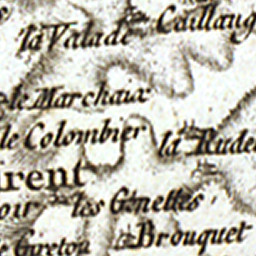 la Valade
Caillaug
le Marchaix
le Colombier
la Rude
irent
oir
les Genettes
le Gireton
Brouquet